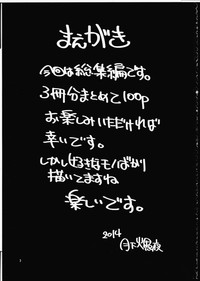 まえがき
今回は総集編です。
3冊分まとめて100p
お楽しみいただければ
幸いです。
しかし好きなモノばかり
描いてますね
楽しいです。
2014
月下爆夜